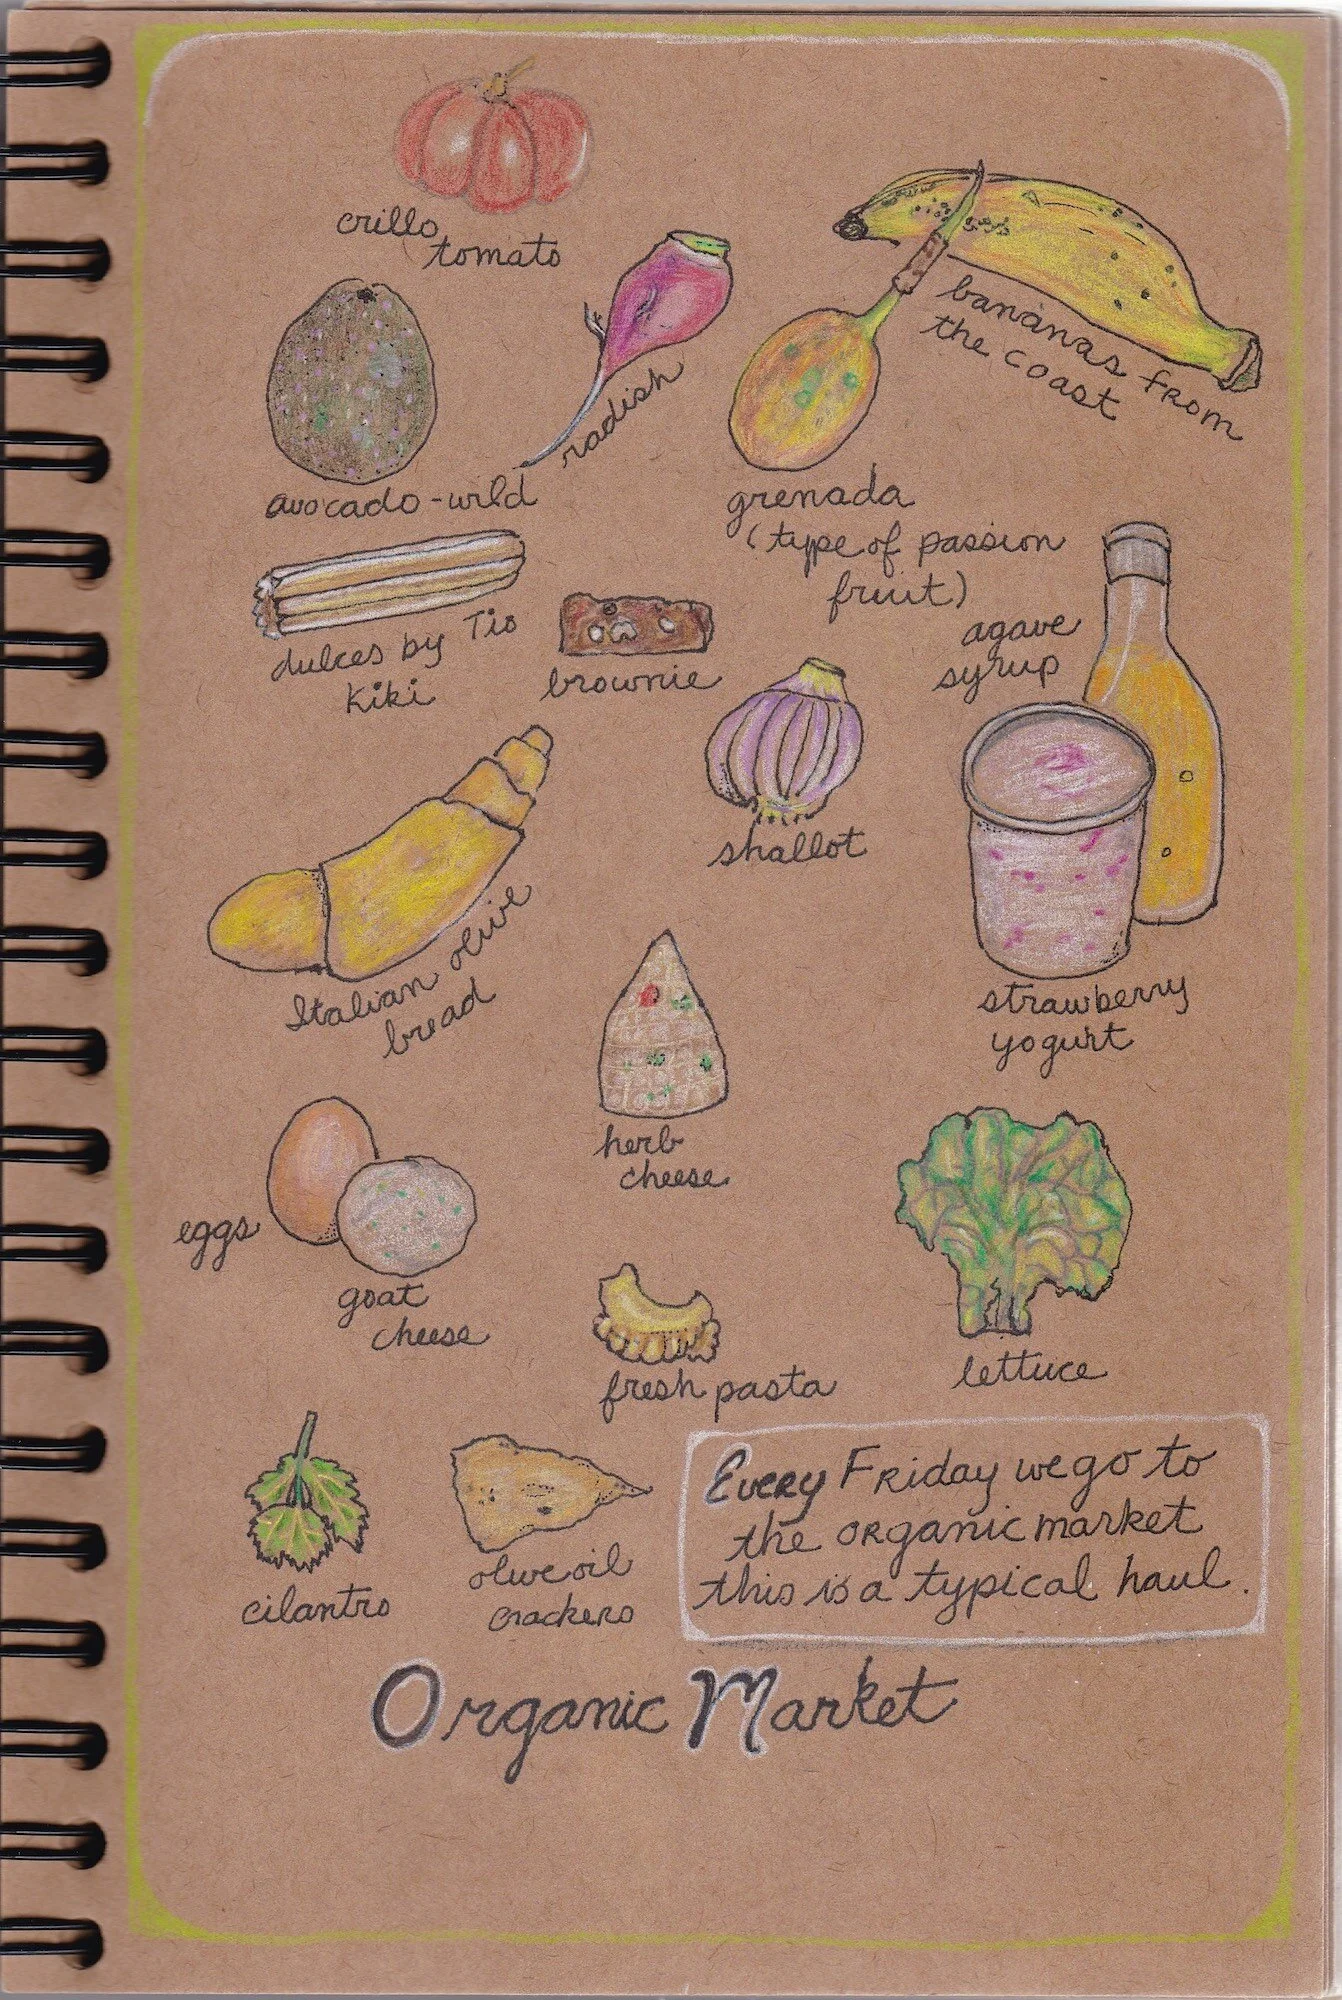 crillo
tomato
radish
bananas from
the coast
avocado-wild
grenada
(type of passion
fruit)
dulces by Tio
Kiki
brownie
agave
syrup
shallot
Italian olive
bread
strawberry
yogurt
herb
cheese
eggs
goat
cheese
fresh pasta
lettuce
cilantro
olive oil
crackers
Every Friday we go to
the organic market
this is a typical haul.
Organic Market